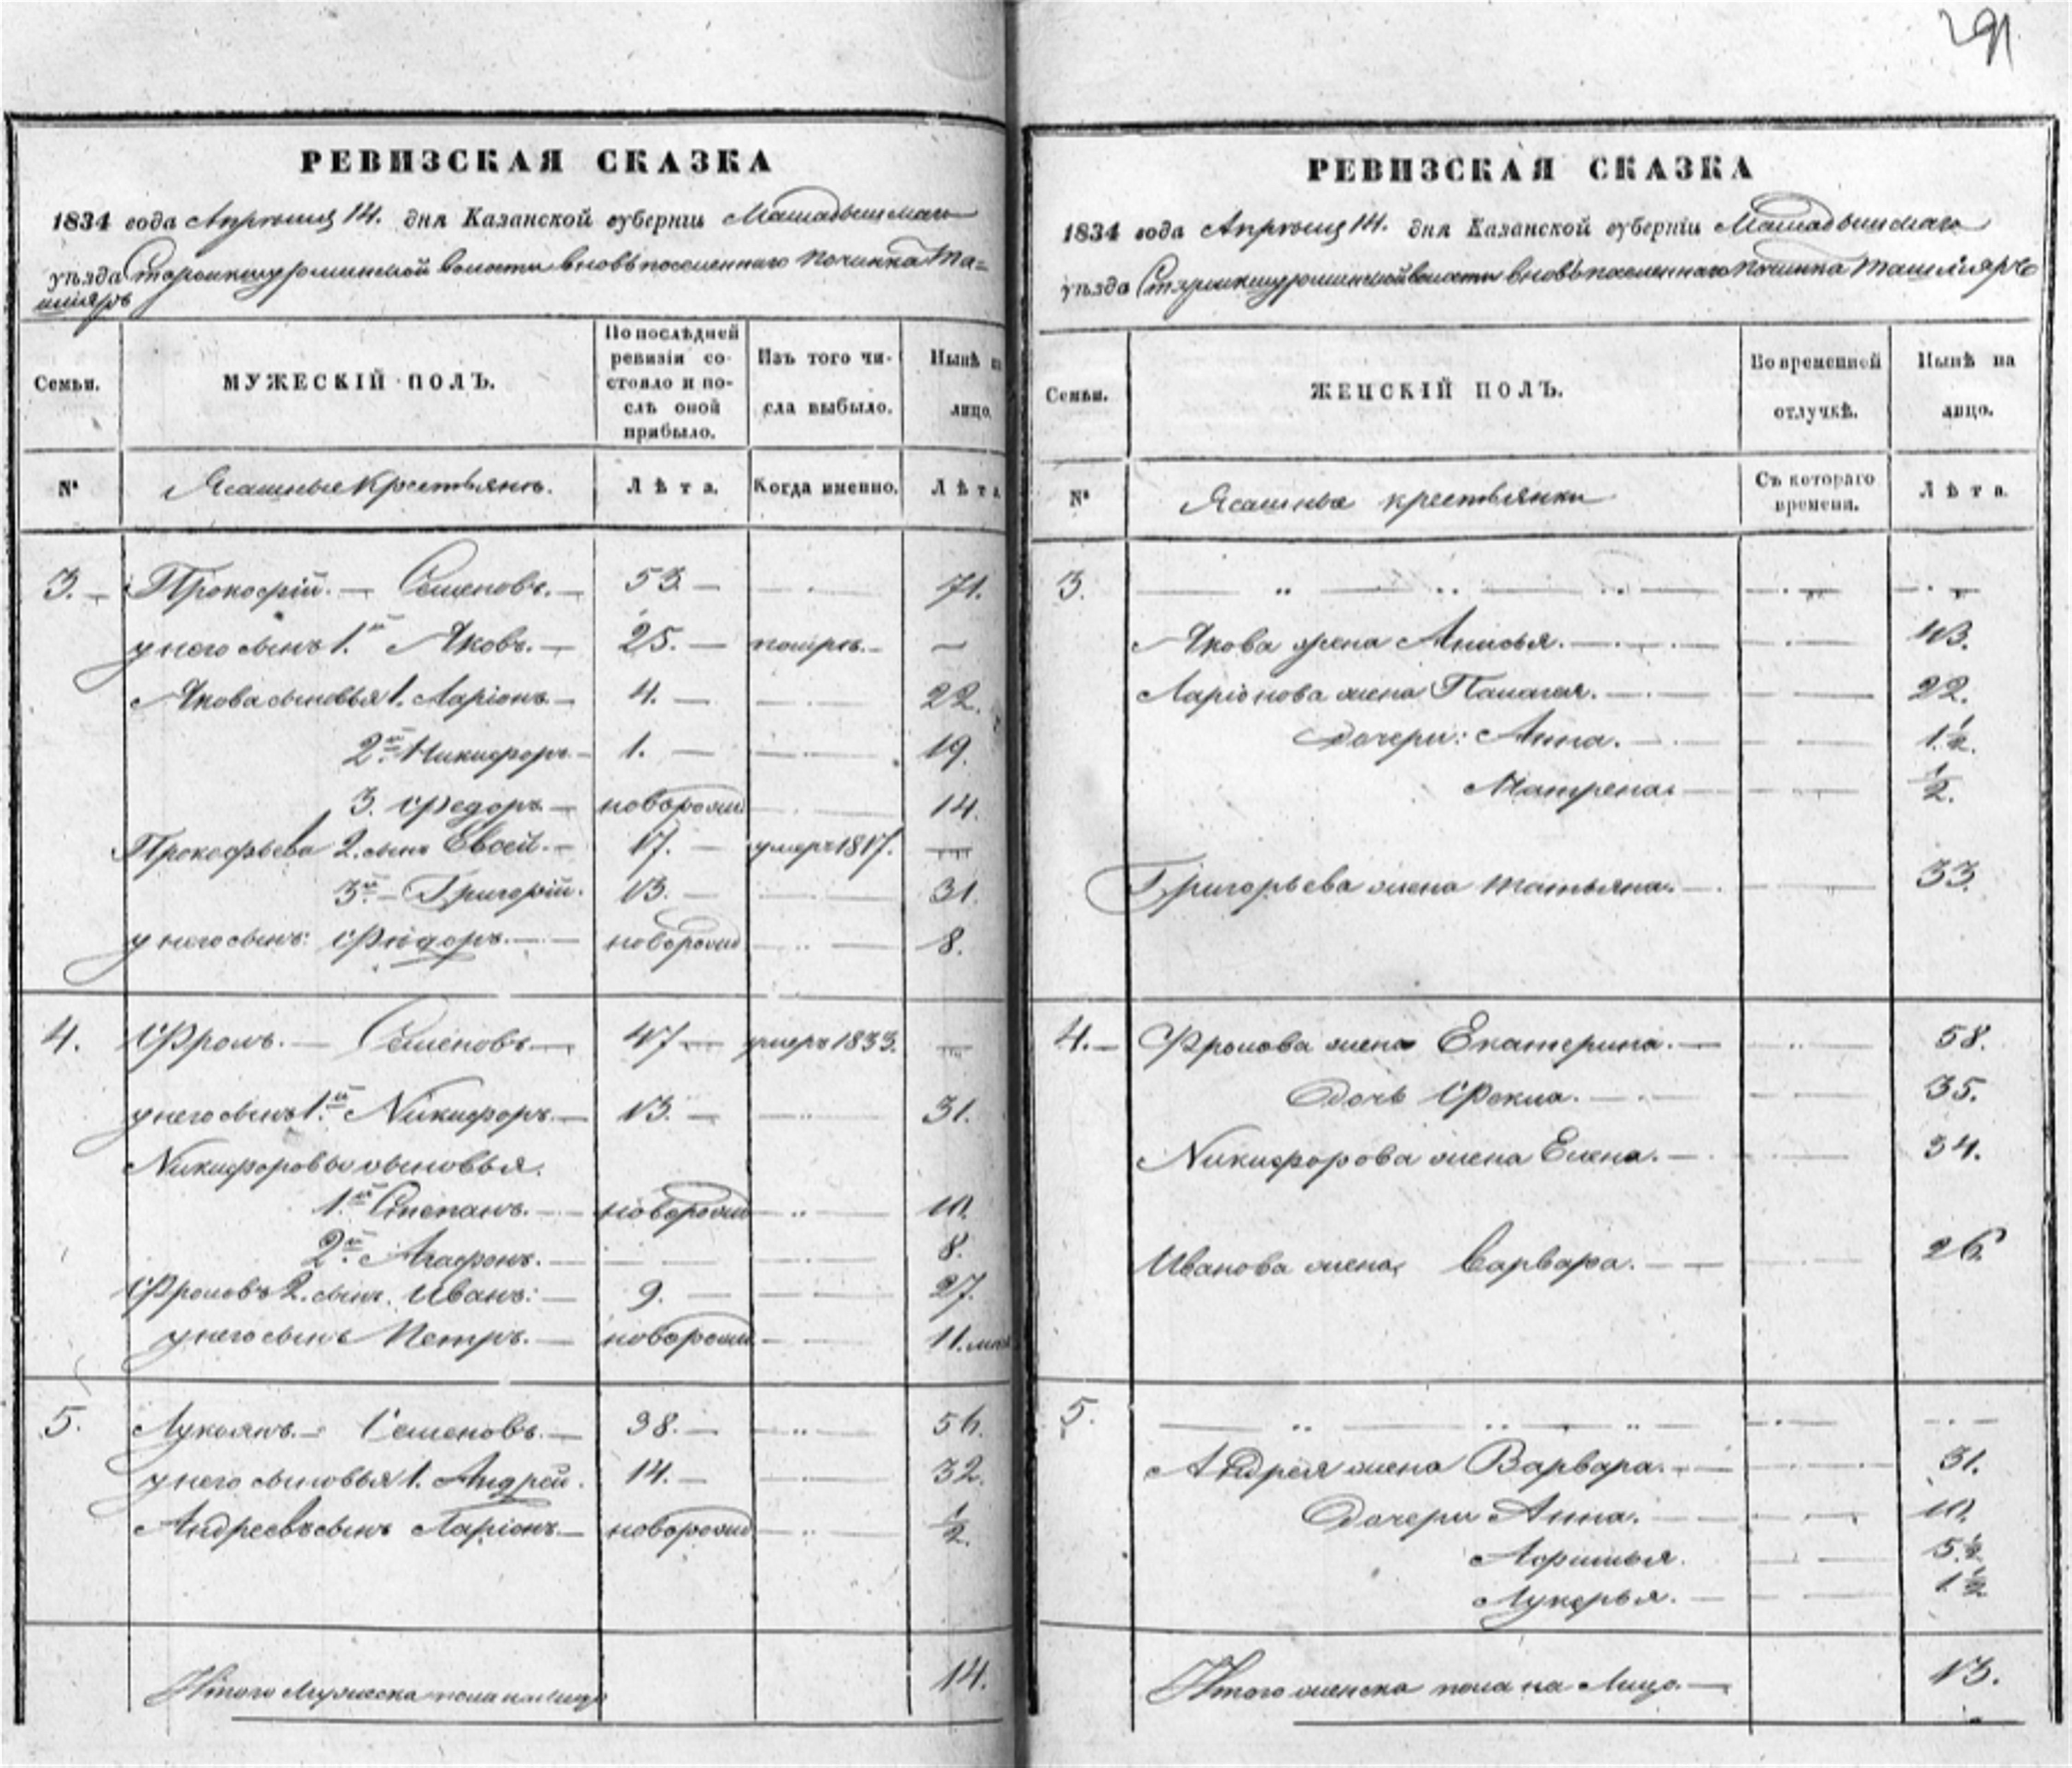 291
РЕВИЗСКАЯ СКАЗКА
1834 года Апрѣля 14. дня Казанской губерніи Мамадышскаго
уѣзда Старошкурминской волости вновь поселеннаго починка Та=
шляръ
Семьи.
МУЖЕСКІЙ ПОЛЪ.
По послѣдней
ревизіи со-
стояло и по-
слѣ оной
прибыло.
Изъ того чи-
сла выбыло.
Нынѣ на
лицо.
№
Ясашные Крестьянъ.
Лѣта.
Когда именно.
Лѣта
3. Прокофій. Семеновъ. 53. 71.
у него сынъ 1.й Яковъ. 25. —
Якова сыновья 1. Ларіонъ 4. 22.
2.й Никифоръ 1. 19.
3. Федоръ новорожд 14.
Прокофьева 2. сынъ Евсей. 17. умеръ 1817. —
3.й Григорій. 13. 31.
у него сынъ: Фѣдоръ. новорожд 8.
4. Фролъ. Семеновъ 47 умеръ 1833. —
у него сынъ 1.й Никифоръ. 13. 31.
Никифоровы сыновья.
1.й Степанъ. новорожд 10.
2.й Агафонъ. — 8.
Фроловъ 2. сынъ. Иванъ: 9. 27.
у него сынъ Петръ. новорожд 11. мѣс
5. Лукоянъ. Семеновъ. 38. 56.
у него сыновья 1. Андрей. 14. 32.
Андреевъ сынъ Ларіонъ новорожд ½.
Итого Мужеска пола на лицо 14.
РЕВИЗСКАЯ СКАЗКА
1834 года Апрѣля 14. дня Казанской губерніи Мамадышскаго
уѣзда Старошкурминской волости вновь поселеннаго Починка Ташляръ
Семьи.
ЖЕНСКІЙ ПОЛЪ.
Во временной
отлучкѣ.
Нынѣ на
лицо.
№
Ясашные крестьянки
Съ котораго
времени.
Лѣта.
3.
Якова жена Анисья. 43.
Ларіонова жена Палагея. 22.
Дочери: Анна. 1.½.
Матрена. ½.
Григорьева жена татьяна. 33.
4. Фролова жена Екатерина. 58.
Дочь Фекла. 35.
Никифорова жена Елена. 34.
Иванова жена, Варвара. 26.
5.
Андрея жена Варвара. 31.
Дочери Анна. 10.
Афимья. 5.½
Лукерья. 1.½
Итого женска пола на Лицо. 13.